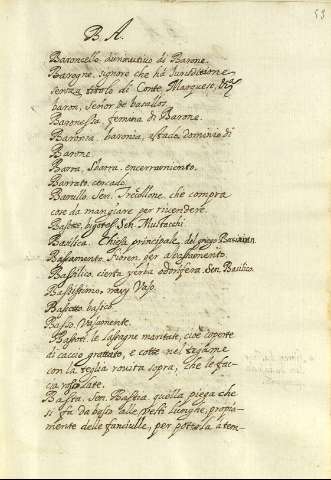 B A.
53
Baroncello, diminutivo di Barone.
Barone, signore che há Jurisditione
senza titolo di Conte Marquese, &ra
baron, señor de vasallos.
Baronessa femina di Barone.
Baronia, baronia, estado, dominio di
Barone
Barra, Sbarra, encerramiento.
Barrato, cercado.
Barullo, Sen. Treccolone, che compra
cose da mangiare per rivendere.
Basette, bigotes Sen. Mustacchi
Basilica, Chiesa principale, del grego
Bassamente, Fioren. per abbassamento
Bassilico, cierta yerba odorifera, Sen. Basilico
Bassissimo, muy vaxo.
Bassotto, baxico.
Basso, vajamente.
Bastoti, le lassagne maritate, cioe coperte
di caccio grattato, e cotte nel tegame
con la teglia rovita sopra, che le fac-
ca rosolate.
Basta, Sen. Bastia, quella piega che
si fa da basso alle vesti lunghe, propia-
mente delle fanciulle, per poterla à tem-